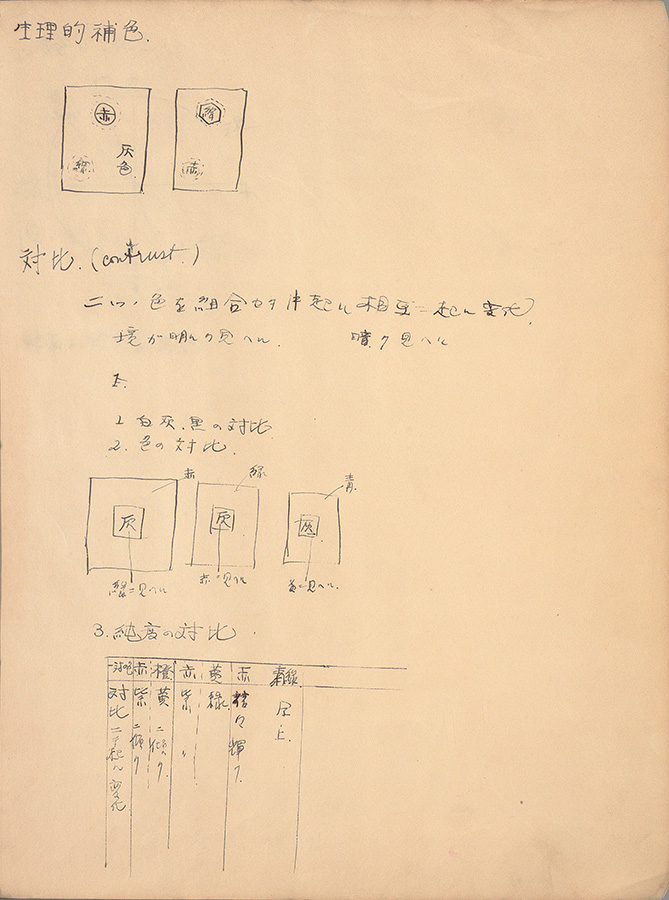 生理的補色.
赤
緑
灰色
緑
赤
対比. (contrust.)
二ツノ色を組合セタ時起ル相互ニ起ル変化.
境が明ルク見ヘル. 暗ク見ヘル
1 白灰.黒の対比
2. 色の対比.
赤
緑
青
灰
灰
灰
緑ニ見ヘル
赤ニ見ヘル
黄ニ見ヘル.
3. 純度の対比.
一対の色
赤
橙
赤
黄
赤
青緑
対比ニテ起ル変化
紫ニ傾ク
黄ニ傾ク.
紫〃
緑
輝ク.
仝上.